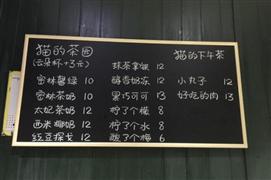 猫的茶园
(云朵杯+3元)
密林馥绿 10
密林茶奶 10
太妃茶奶 12
西米椰奶 12
红豆探戈 12
抹茶拿铁 12
醇香奶冻 12
果巧可可 13
柠了个檬 8
柠了个水 8
酸了个橙 6
猫的下午茶
小丸子 12
好吃的肉 13